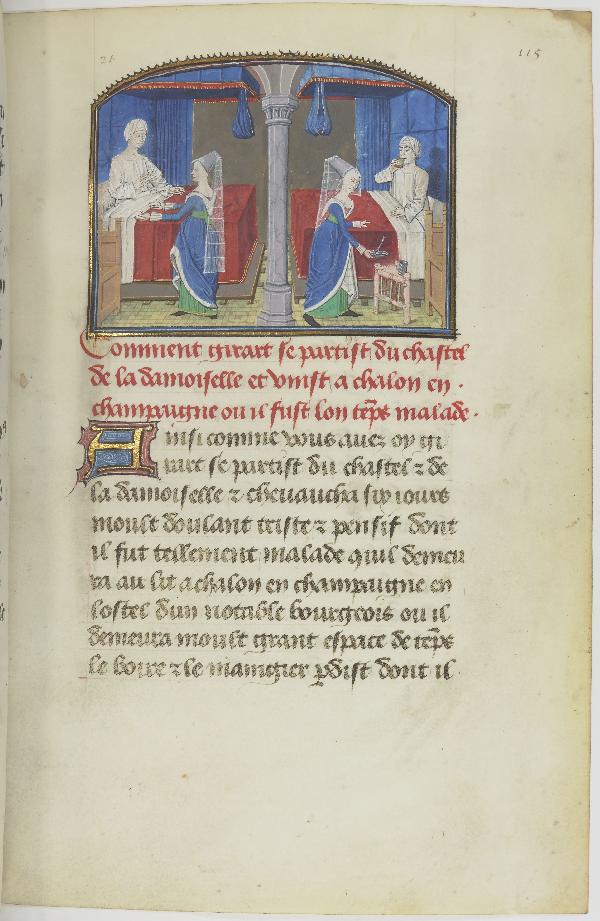 115
Comment girart se partist du chastel
de la damoiselle et vinst a chalon en .
champaigne ou il fust lon tẽps malade .
Ainsi comme vous auez oy gi
rart se partist du chastel ⁊ de
la damoiselle ⁊ cheuaucha six iours
moult doulant triste ⁊ pensif dont
il fut tellement malade quil demeu
ra au lit a chalon en champaigne en
lostel dun notable bourgeois ou il
demeura moult grant espace de tẽps
le boire ⁊ le mangier ꝑdist dont il